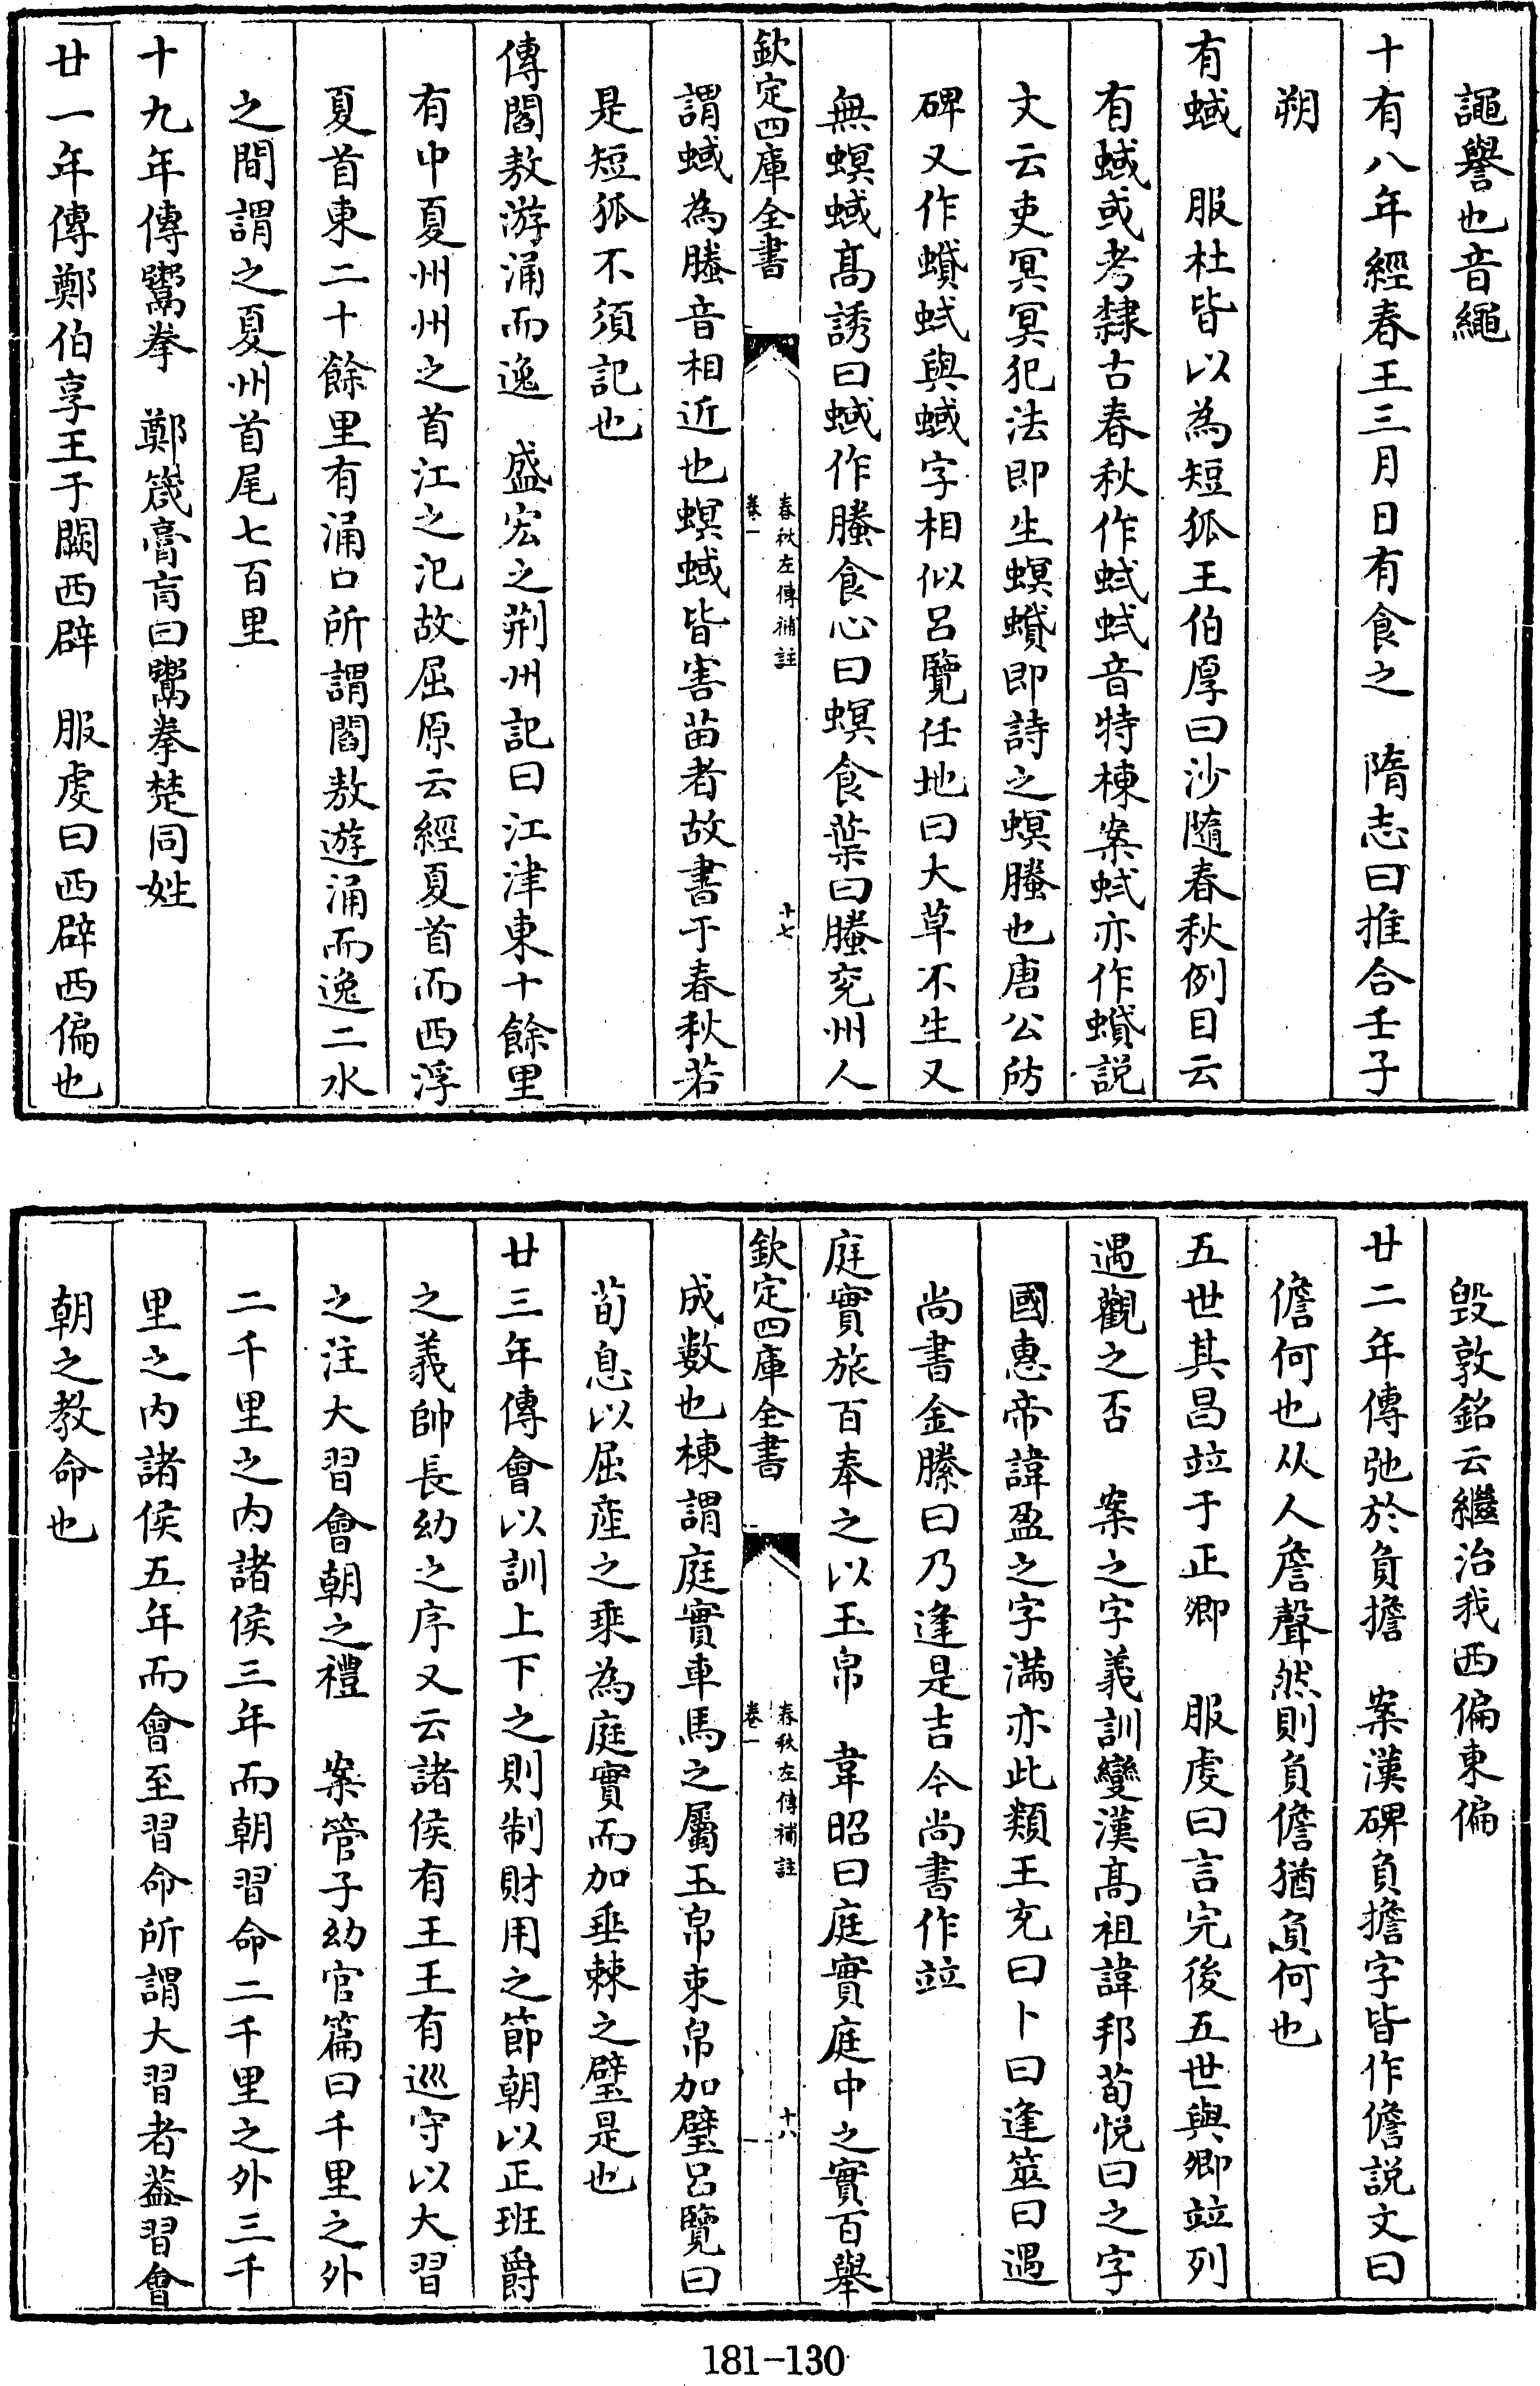 譝譽也音繩
十有八年經春王三月日有食之　隋志曰推合壬子
朔
有蜮　服杜皆以為短狐王伯厚曰沙隨春秋例目云
有蜮或考隸古春秋作蟘蟘音特棟案蟘亦作蟘說
文云吏冥冥犯法即生螟蟘即詩之螟螣也唐公防
碑又作蟘蟘與蜮字相似呂覽任地曰大草不生又
無螟蜮髙誘曰蜮作螣食心曰螟食葉曰螣兖州人
欽定四庫全書
春秋左傳補註
卷一
十七
謂蜮為螣音相近也螟蜮皆害苗者故書于春秋若
是短狐不須記也
傳閻敖游涌而逸　盛宏之荆州記曰江津東十餘里
有中夏州州之首江之汜故屈原云經夏首而西浮
夏首東二十餘里有涌口所謂閻敖遊涌而逸二水
之間謂之夏州首尾七百里
十九年傳鬻拳　鄭箴膏肓曰鬻拳楚同姓
廿一年傳鄭伯享王于闕西辟　服虔曰西辟西偏也
毁敦銘云繼治我西偏東偏
廿二年傳弛於負擔　案漢碑負擔字皆作儋說文曰
儋何也从人詹聲然則負儋猶負何也
五世其昌竝于正卿　服虔曰言完後五世與卿竝列
遇觀之否　案之字義訓變漢髙祖諱邦荀悅曰之字
國惠帝諱盈之字滿亦此類王充曰卜曰逢筮曰遇
尚書金縢曰乃逢是吉今尚書作竝
庭實旅百奉之以玉帛　韋昭曰庭實庭中之實百舉
欽定四庫全書
春秋左傳補註
卷一
十八
成數也棟謂庭實車馬之屬玉帛束帛加璧呂覽曰
荀息以屈產之乘為庭實而加垂棘之璧是也
廿三年傳會以訓上下之則制財用之節朝以正班爵
之義帥長幼之序又云諸侯有王王有巡守以大習
之注大習會朝之禮　案管子幼官篇曰千里之外
二千里之內諸侯三年而朝習命二千里之外三千
里之內諸侯五年而會至習命所謂大習者葢習會
朝之教命也
181-130